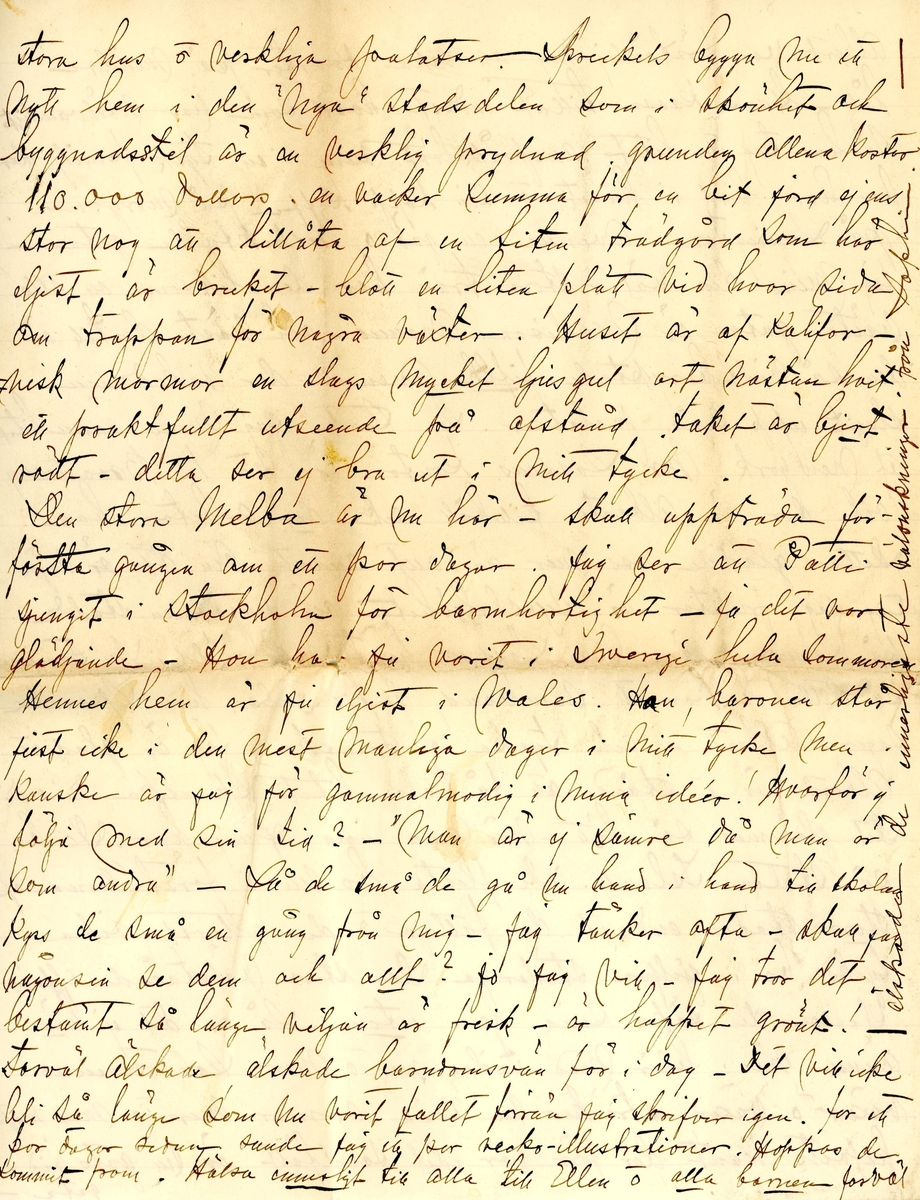 stora hus o verkliga palatser. Spreckels bygga nu ett
nytt hem i den "nya" stadsdelen som i skönhet och
byggnadsstil är en verklig prydnad. grunden allena kostar
110.000 Dollars. en vacker Summa för en bit jord ej ens
stor nog att tillåta af en liten trädgård som här
eljest är bruket - blott en liten plätt vid hvar sida
om trappan för några växter. Huset är af Kalifor-
nisk marmor en slags mycket ljusgul art nästan hvit
ett praktfullt utseende på afstånd. taket är bjert
rödt - detta ser ej bra ut i mitt tycke.
Den stora Melba är nu här - skall uppträda för-
första gången om ett par dagar. Jag ser att Patti
sjungit i Stockholm för barmhertighet - ja det var
glädjande - Hon har ju varit i Sverige hela sommaren
Hennes hem är ju eljest i Wales. Han, baronen står
just icke i den mest manliga dager i mitt tycke men
kanske är jag för gammalmodig i mina idéer! Hvarför ej
följa med sin tid? - "Man är ej sämre då man är
som andra" - Så de små de gå nu hand i hand till skolan
Kyss de små en gång från mig - jag tänker ofta - skall jag
någonsin se dem och allt? jo jag vill - jag tror det
bestämt så länge viljan är frisk - är hoppet grönt!
Farväl älskade älskade barndomsvän för i dag - Det vill icke
bli så länge som nu varit fallet förrän jag skrifver igen. för ett
par dagar sedan sände jag ett par vecko-illustrationer. Hoppas de
kommit fram. Hälsa innerligt till alla till Ellen o alla barnen farväl
älskade de innerligaste välönskningar från Sophie